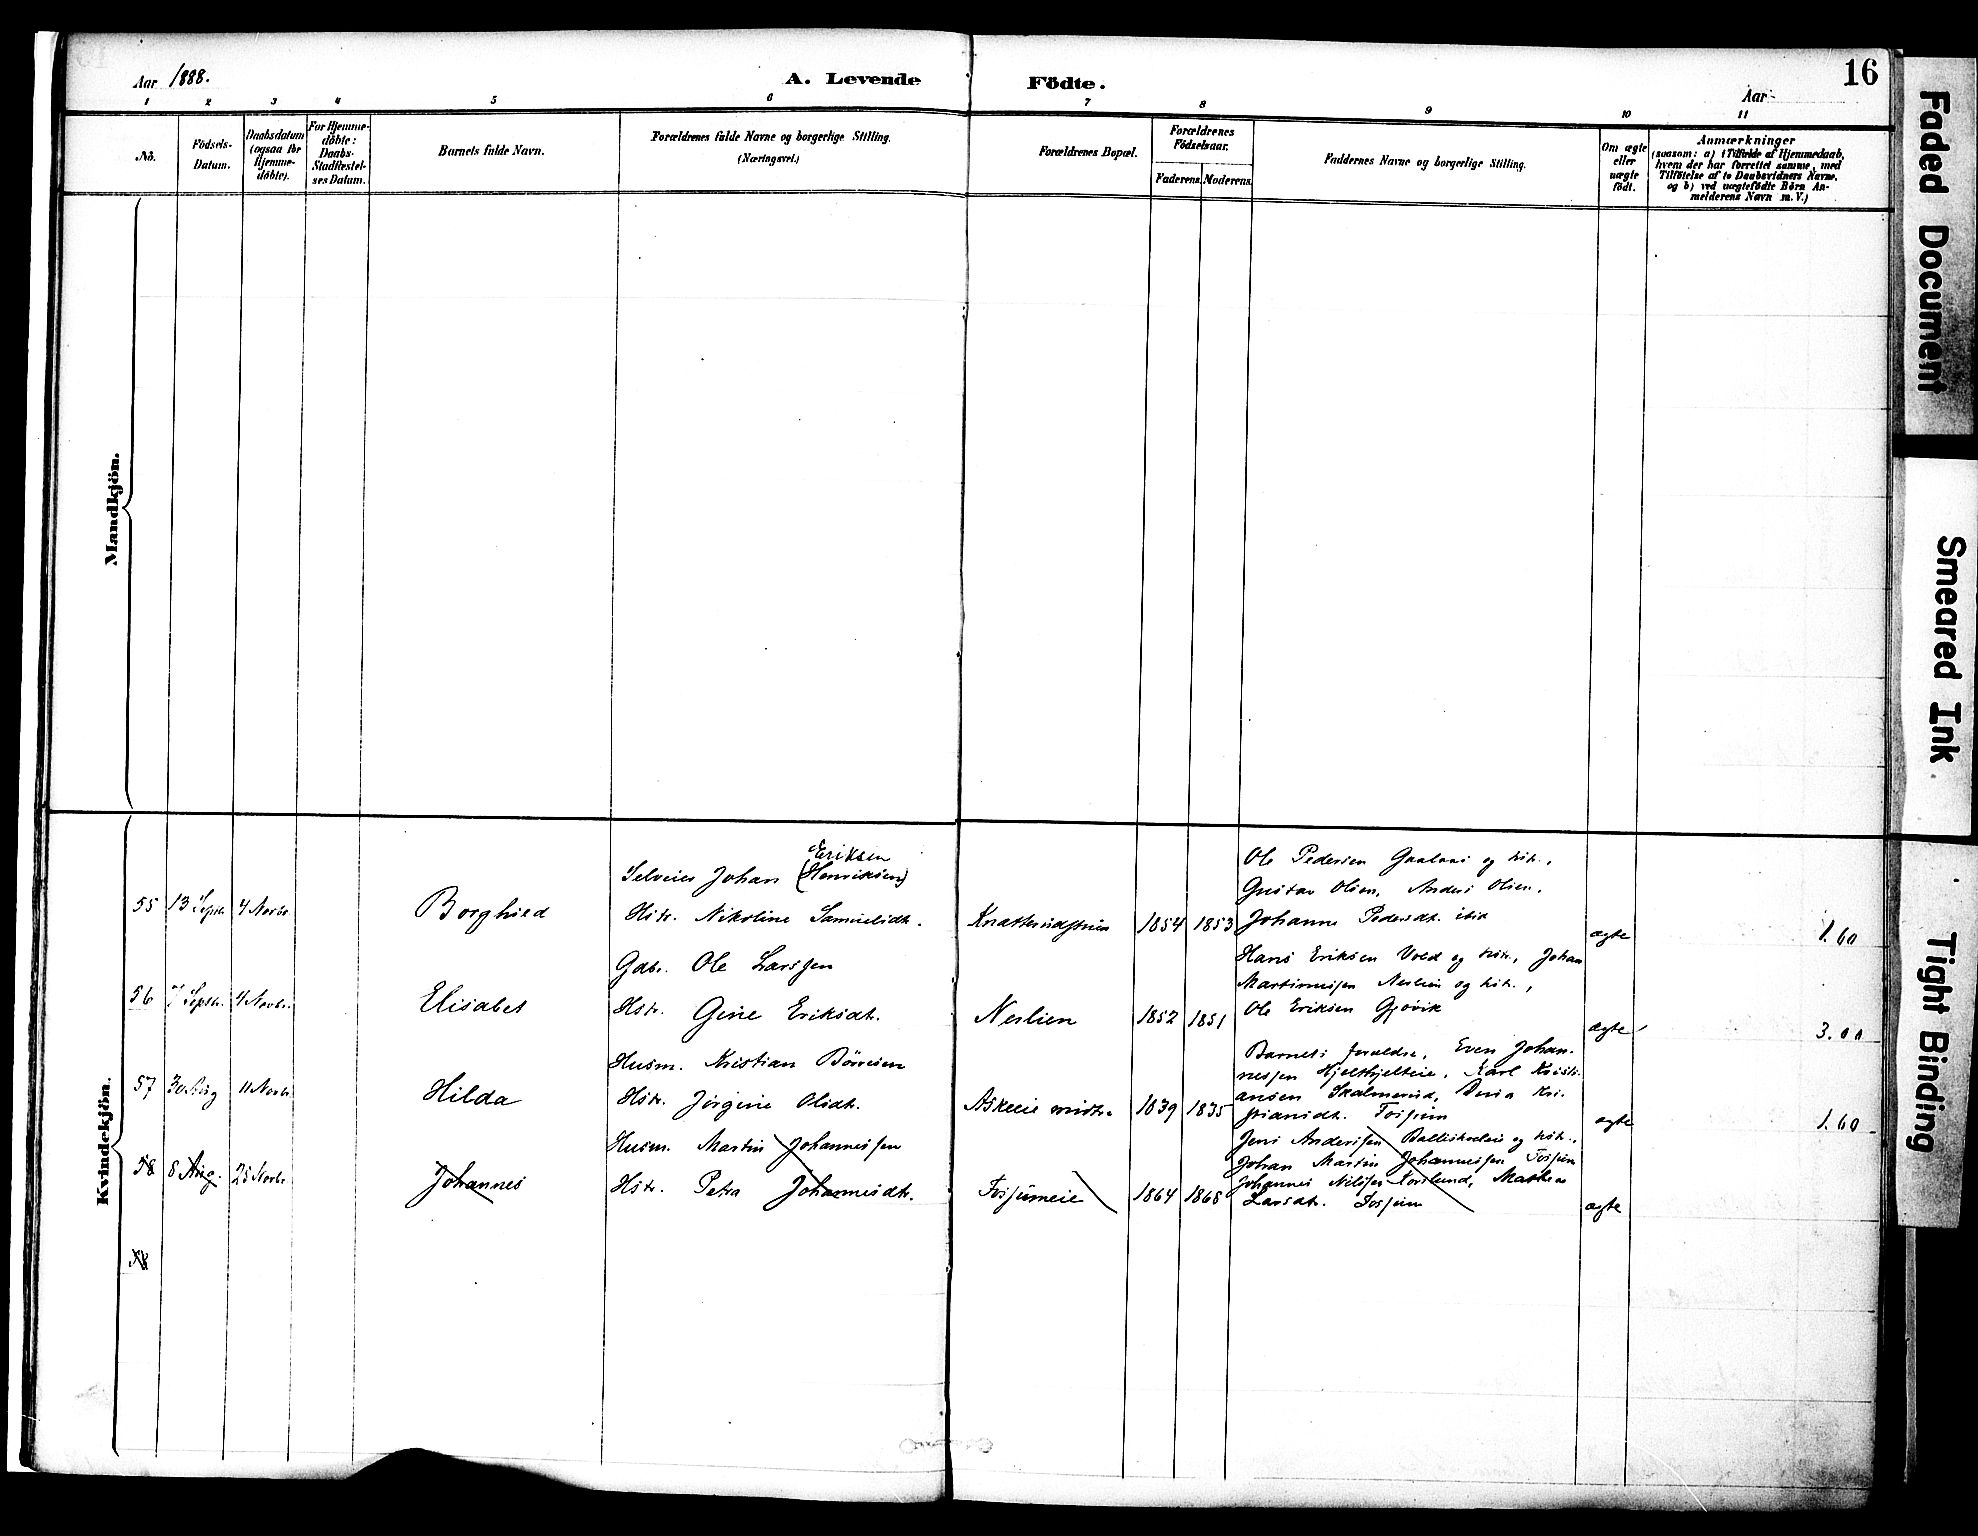 Aar 1888.
A. Levende Födte.
16
Aar
1 2 3 4 5 6 7 8 9 10 11
No.
Födsels-
Datum.
Daabsdatum
(ogsaa for
Hjemme-
döbte).
For Hjemme-
döbte:
Daabs-
Stadfæstel-
ses Datum.
Barnets fulde Navn.
Forældrenes fulde Navne og borgerlige Stilling.
(Næringsvei.)
Forældrenes Bopæl.
Forældrenes
Födselsaar.
Faderens. Moderens.
Faddernes Navne og borgerlige Stilling.
Om ægte
eller
uægte
födt.
Anmærkninger
(saasom: a) i Tilfælde af Hjemmedaab,
hvem der har forrettet samme, med
Tilföielse af to Daabsvidners Navne.
og b) ved uægtefödte Börn An-
melderens Navn m. V.)
Mandkjön.
Kvindekjön.
55 13 Septr. 4 Novbr.
Borghild
Eriksen
Selveier Johan (Henriksen)
Hstr. Nikoline Samuelsdtr.
1854 1853
Ole Pedersen Gaalaas og hstr.,
Gustav Olsen, Anders Olsen,
Johanne Pedersdtr. ibid
ægte
1.60
56 7 Septr. 4 Novbr.
Elisabet
Gdbr. Ole Larssen
Hstr. Gine Eriksdtr.
Neslien
1852 1851
Hans Eriksen Vold og hstr., Johan
Martinussen Neslien og hstr.,
Ole Eriksen Gjøvik
ægte
3.00
57 30 Aug 11 Novbr
Hilda
Husm. Kristian Børresen
Hstr. Jørgine Olsdtr.
Askeeie
1839 1835
Barnets forældre, Even Johan-
nessen Hjelthjelteie, Karl Kristi-
ansen Skalmerud, Kri-
stiansdtr. Fossum
ægte
1.60
58 8 Aug. 25 Novbr.
Johannes
Husm. Martin Johannessen
Hstr. Petra Johannesdtr.
Fossumeie
1864 1868
Jens Anderssen og hstr.,
Johan Martin Johannessen Fossum
Johannes Nilssen Korslund, Mathea
Larsdtr. Fossum
ægte
58
Faded Document
Smeared Ink
Tight Binding